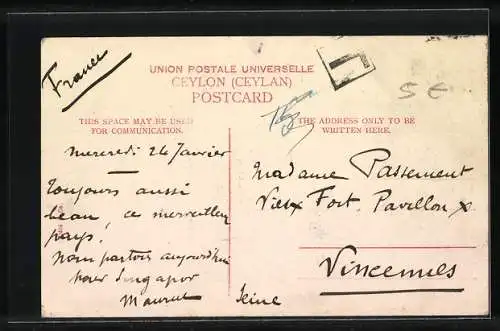 France
UNION POSTALE UNIVERSELLE
CEYLON (CEYLAN)
POSTCARD
5 €
THIS SPACE MAY BE USED
FOR COMMUNICATION.
THE ADDRESS ONLY TO BE
WRITTEN HERE.
Mercredi 24 Janvier
Toujours aussi
beau, ce merveilleux
pays!
Nous partons aujourd'hui
pour Singapor
Madame Passement
Vieux Fort. Pavillon
Vincennes
Seine